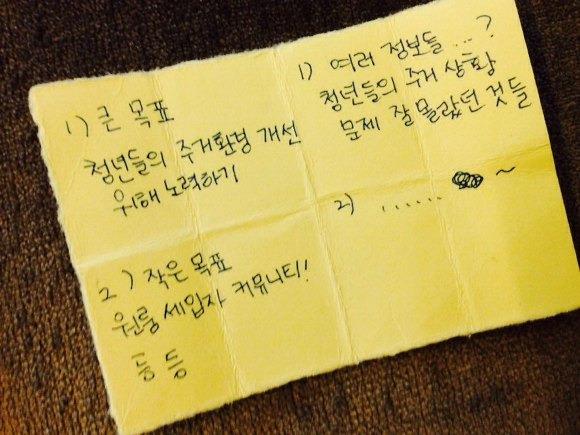 1) 큰 목표
청년들의 주거환경 개선
위해 노력하기
2) 작은 목표
원룸 세입자 커뮤니티!
등 등
1) 여러 정보들...?
청년들의 주거 상황
문제 잘 몰랐던 것들
2) ...... ~